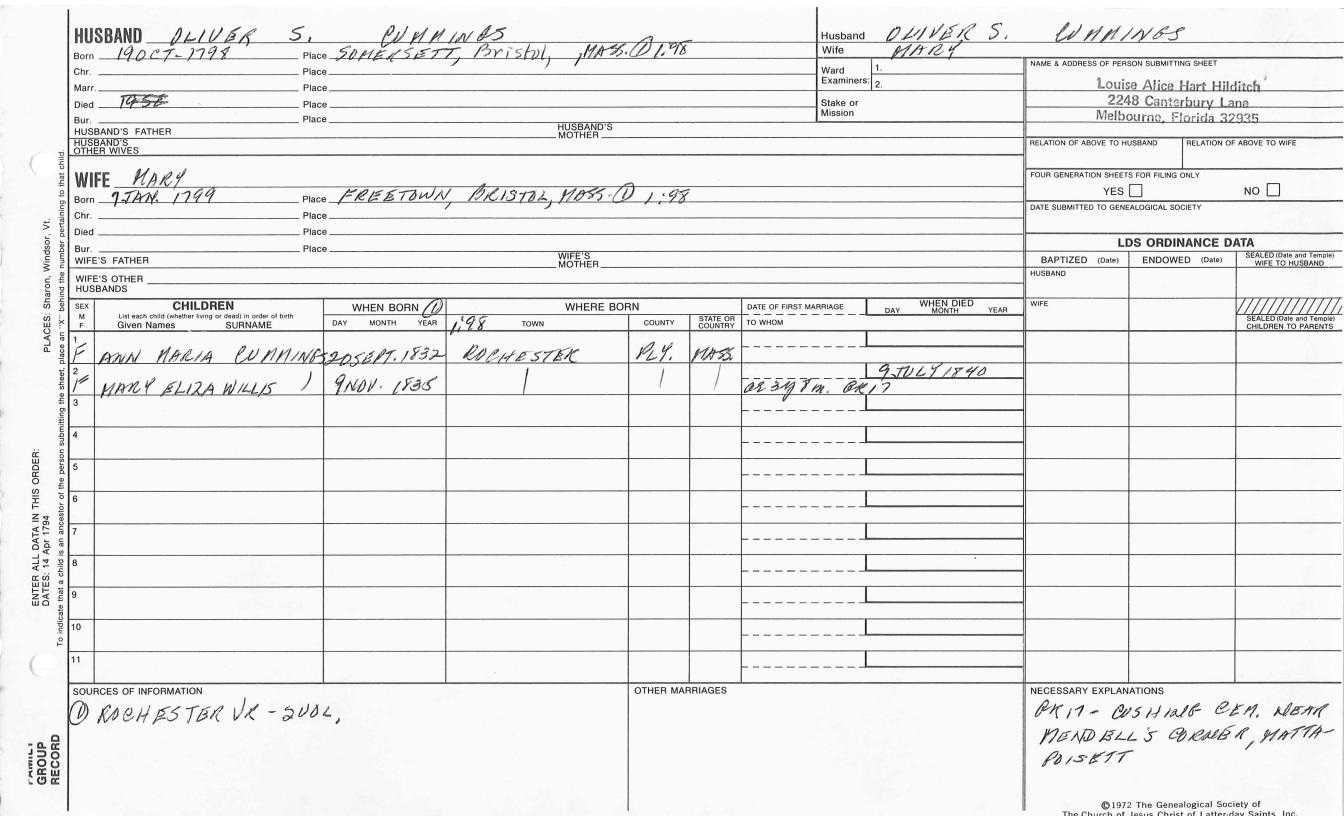 HUSBAND OLIVER S. CUMMINGS
Born 19 OCT-1798 Place SOMERSETT, Bristol, , MASS. ① 1:98
Chr. Place
Marr. Place
Died Place
Bur. Place
HUSBAND'S FATHER HUSBAND'S MOTHER
HUSBAND'S OTHER WIVES
Husband OLIVER S. CUMMINGS
Wife MARY
Ward Examiners: 1.
2.
Stake or Mission
NAME & ADDRESS OF PERSON SUBMITTING SHEET
Louise Alice Hart Hilditch
2248 Canterbury Lane
Melbourne, Florida 32935
RELATION OF ABOVE TO HUSBAND RELATION OF ABOVE TO WIFE
FOUR GENERATION SHEETS FOR FILING ONLY
YES NO
DATE SUBMITTED TO GENEALOGICAL SOCIETY
WIFE MARY
Born 7 JAN. 1799 Place FREETOWN, BRISTOL, MASS. ① 1:98
Chr. Place
Died Place
Bur. Place
WIFE'S FATHER WIFE'S MOTHER
WIFE'S OTHER HUSBANDS
LDS ORDINANCE DATA
BAPTIZED (Date) ENDOWED (Date) SEALED (Date and Temple) WIFE TO HUSBAND
HUSBAND
WIFE
SEALED (Date and Temple) CHILDREN TO PARENTS
SEX M F
CHILDREN
List each child (whether living or dead) in order of birth
Given Names SURNAME
WHEN BORN ①
DAY MONTH YEAR 1:98
WHERE BORN
TOWN COUNTY STATE OR COUNTRY
DATE OF FIRST MARRIAGE
TO WHOM
WHEN DIED
DAY MONTH YEAR
1 F ANN MARIA CUMMINGS 20 SEPT. 1832 ROCHESTER PLY. MASS.
2 F MARY ELIZA WILLIS ) 9 NOV. 1835 | | | 9 JULY 1840
ae 3y 8m. GR17
3
4
5
6
7
8
9
10
11
SOURCES OF INFORMATION
① ROCHESTER VR - 2 VOL.
OTHER MARRIAGES
NECESSARY EXPLANATIONS
GR 17 - CUSHING CEM. NEAR
MENDELL'S CORNER, MATTA-
POISETT
©1972 The Genealogical Society of
The Church of Jesus Christ of Latter-day Saints, Inc.
PLACES: Sharon, Windsor, Vt.
ENTER ALL DATA IN THIS ORDER:
DATES: 14 Apr 1794
To indicate that a child is an ancestor of the person submitting the sheet, place an "X" behind the number pertaining to that child.
FAMILY GROUP RECORD